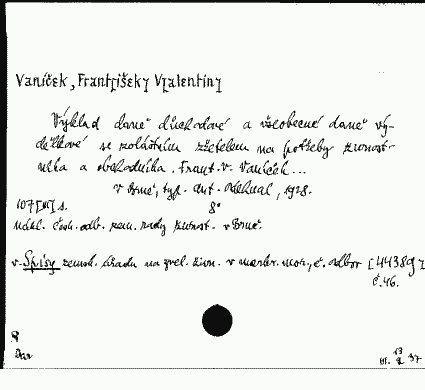 Vaníček, Frant[išek] V[alentin]
Výklad daně důchodové a všeobecné daně vý-
dělkové se zvláštním zřetelem na potřeby živnost-
níka a obchodníka. Frant. V. Vaníček...
V Brně, typ. Ant. Odehnal, 1928.
107 s. 8°
Nákl. Česk. odb. zem. rady živnost. v Brně.
v. Spisy zemsk. úřadu na zvel. živn. v markr. mor., č. odbor [44389]
č. 46.
Dar
37